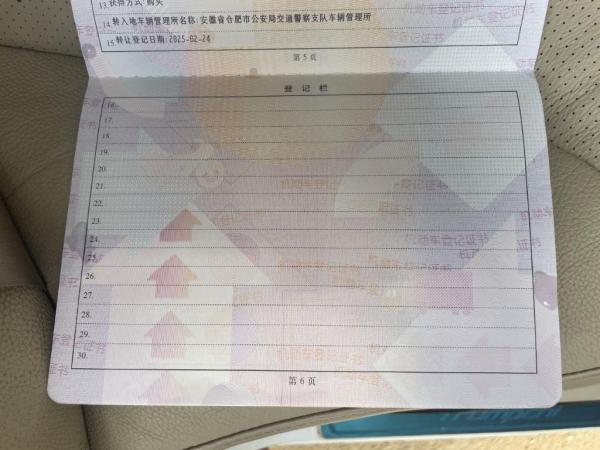 13.获得方式:购买
14.转入地车辆管理所名称:安徽省合肥市公安局交通警察支队车辆管理所
15.转让登记日期:2025-02-24
第5页
登记栏
16.
17.
18.
19.
20.
21.
22.
23.
24.
25.
26.
27.
28.
29.
30.
第6页